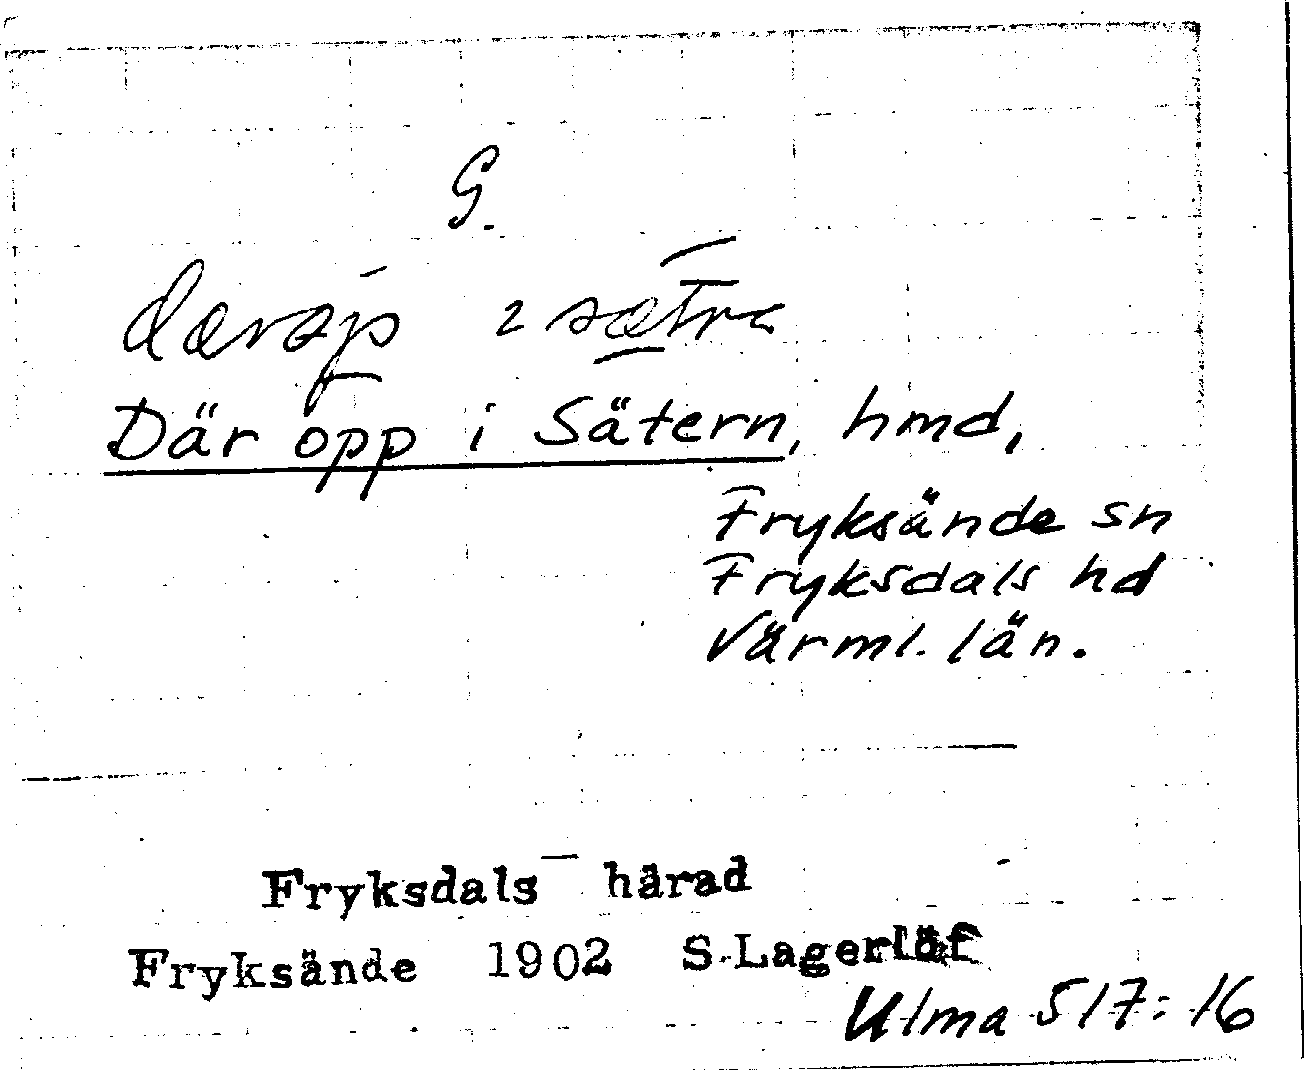 G.
Där opp i Sätern, hmd,
Fryksände sn
Fryksdals hd
Värml. län.
Fryksdals härad
Fryksände 1902 S.Lagerlöf
Ulma 517:16